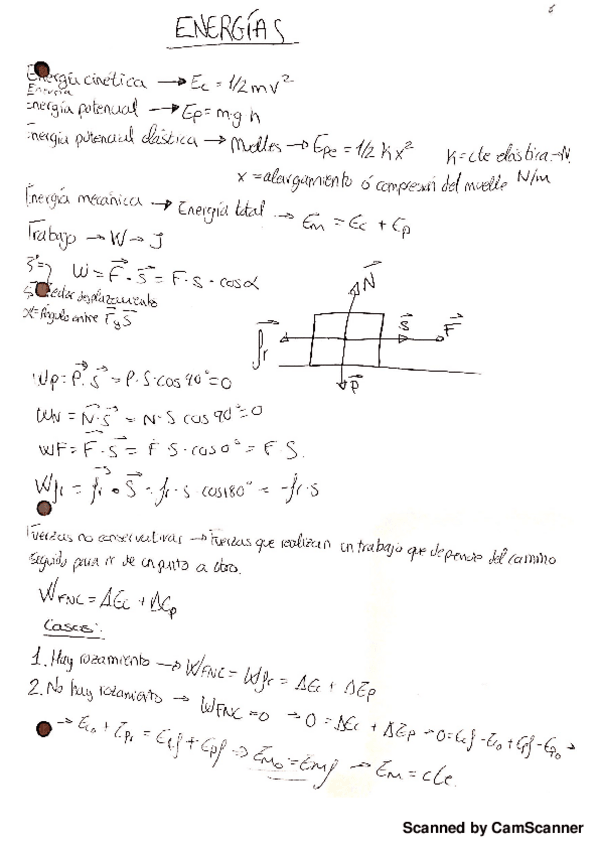 ENERGÍAS
Energía cinética → Ec = 1/2 mv²
Energía
Energía potencial → Ep = m·g h
Energía potencial elástica → Muelles → Epe = 1/2 K x² K = cte elástica → N/m
x = alargamiento ó compresión del muelle
Energía mecánica → Energía total → Em = Ec + Ep
Trabajo → W → J
W = F · S = F · S · cos α
S = Vector desplazamiento
α = Ángulo entre F y S
N
fr S F
P
Wp = P · S = P · S · cos 90° = 0
WN = N · S = N · S cos 90° = 0
WF = F · S = F · S · cos 0° = F · S.
Wfr = fr · S = fr · s cos 180° = -fr · s
Fuerzas no conservativas → Fuerzas que realizan un trabajo que depende del camino
seguido para ir de un punto a otro.
WFNC = ΔEc + ΔEp
Casos:
1. Hay rozamiento → WFNC = Wfr = ΔEc + ΔEp
2. No hay rozamiento → WFNC = 0 → 0 = ΔEc + ΔEp → 0 = Ecf - Eco + Epf - Epo →
→ Eco + Epo = Ecf + Epf → Emo = Emf → Em = cte.
Scanned by CamScanner